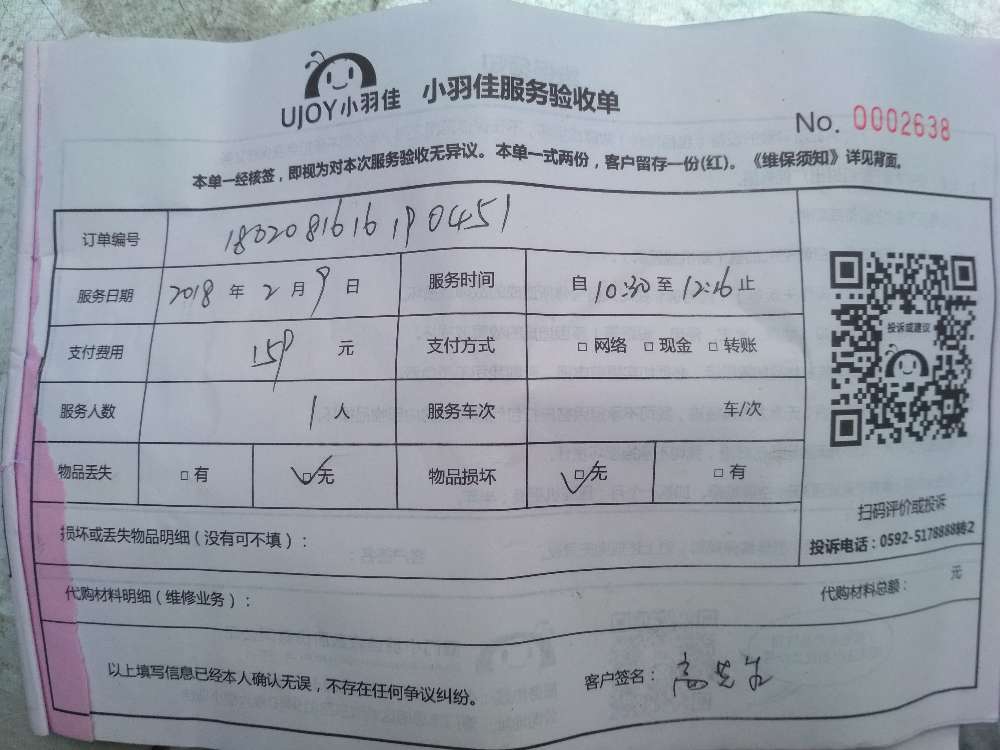 UJOY小羽佳 小羽佳服务验收单
No. 0002638
本单一经核签，即视为对本次服务验收无异议。本单一式两份，客户留存一份(红)。《维保须知》详见背面。
订单编号 1802081616190451
服务日期 2018 年 2 月 9 日 服务时间 自 10:30 至 12:16 止
投诉或建议
支付费用 159 元 支付方式 □ 网络 □ 现金 □ 转账
服务人数 1 人 服务车次 车/次
物品丢失 □ 有 ☑无 物品损坏 ☑无 □ 有
扫码评价或投诉
投诉电话：0592-5178888转2
损坏或丢失物品明细（没有可不填）：
代购材料明细（维修业务）： 代购材料总额： 元
以上填写信息已经本人确认无误，不存在任何争议纠纷。 客户签名： 高先生